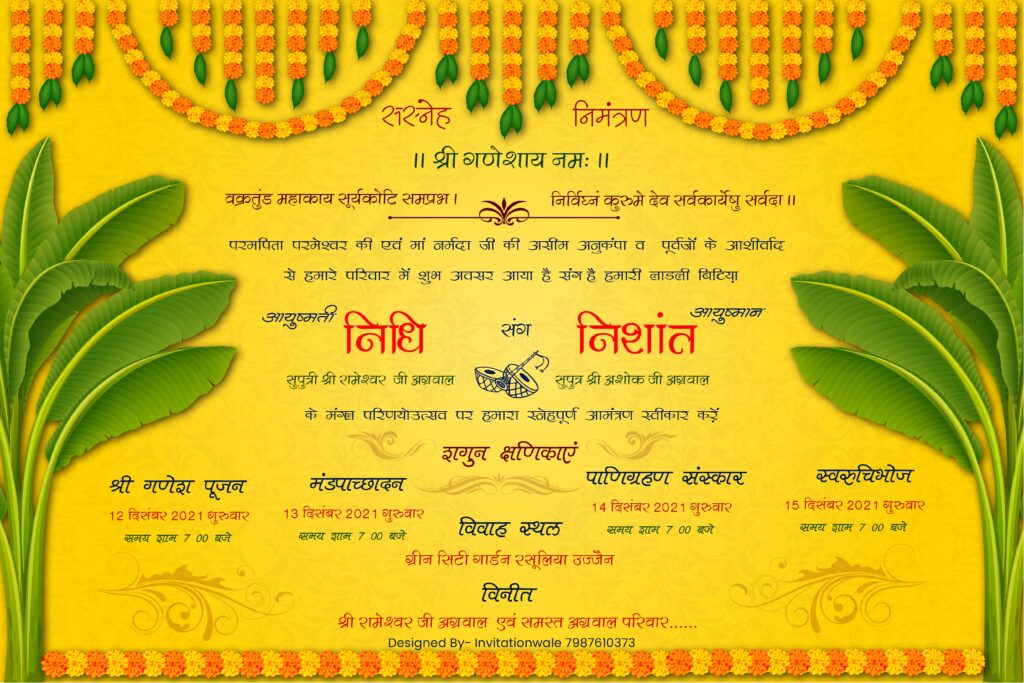 सस्नेह निमंत्रण
।। श्री गणेशाय नमः ।।
वक्रतुंड महाकाय सूर्यकोटि समप्रभ । निर्विघ्नं कुरुमे देव सर्वकार्येषु सर्वदा ।।
परमपिता परमेश्वर की एवं मां नर्मदा जी की असीम अनुकंपा व पूर्वजों के आशीर्वाद
से हमारे परिवार में शुभ अवसर आया है संग है हमारी लाडली बिटिया
आयुष्मती निधि संग निशांत आयुष्मान
सुपुत्री श्री रामेश्वर जी अग्रवाल सुपुत्र श्री अशोक जी अग्रवाल
के मंगल परिणयोउत्सव पर हमारा स्नेहपूर्ण आमंत्रण स्वीकार करें
शगुन क्षणिकाएं
श्री गणेश पूजन मंडपाच्छादन पाणिग्रहण संस्कार स्वरुचिभोज
12 दिसंबर 2021 गुरुवार 13 दिसंबर 2021 गुरुवार 14 दिसंबर 2021 गुरुवार 15 दिसंबर 2021 गुरुवार
समय शाम 7 00 बजे समय शाम 7 00 बजे समय शाम 7 00 बजे समय शाम 7 00 बजे
विवाह स्थल
ग्रीन सिटी गार्डन रसूलिया उज्जैन
विनीत
श्री रामेश्वर जी अग्रवाल एवं समस्त अग्रवाल परिवार......
Designed By- Invitationwale 7987610373